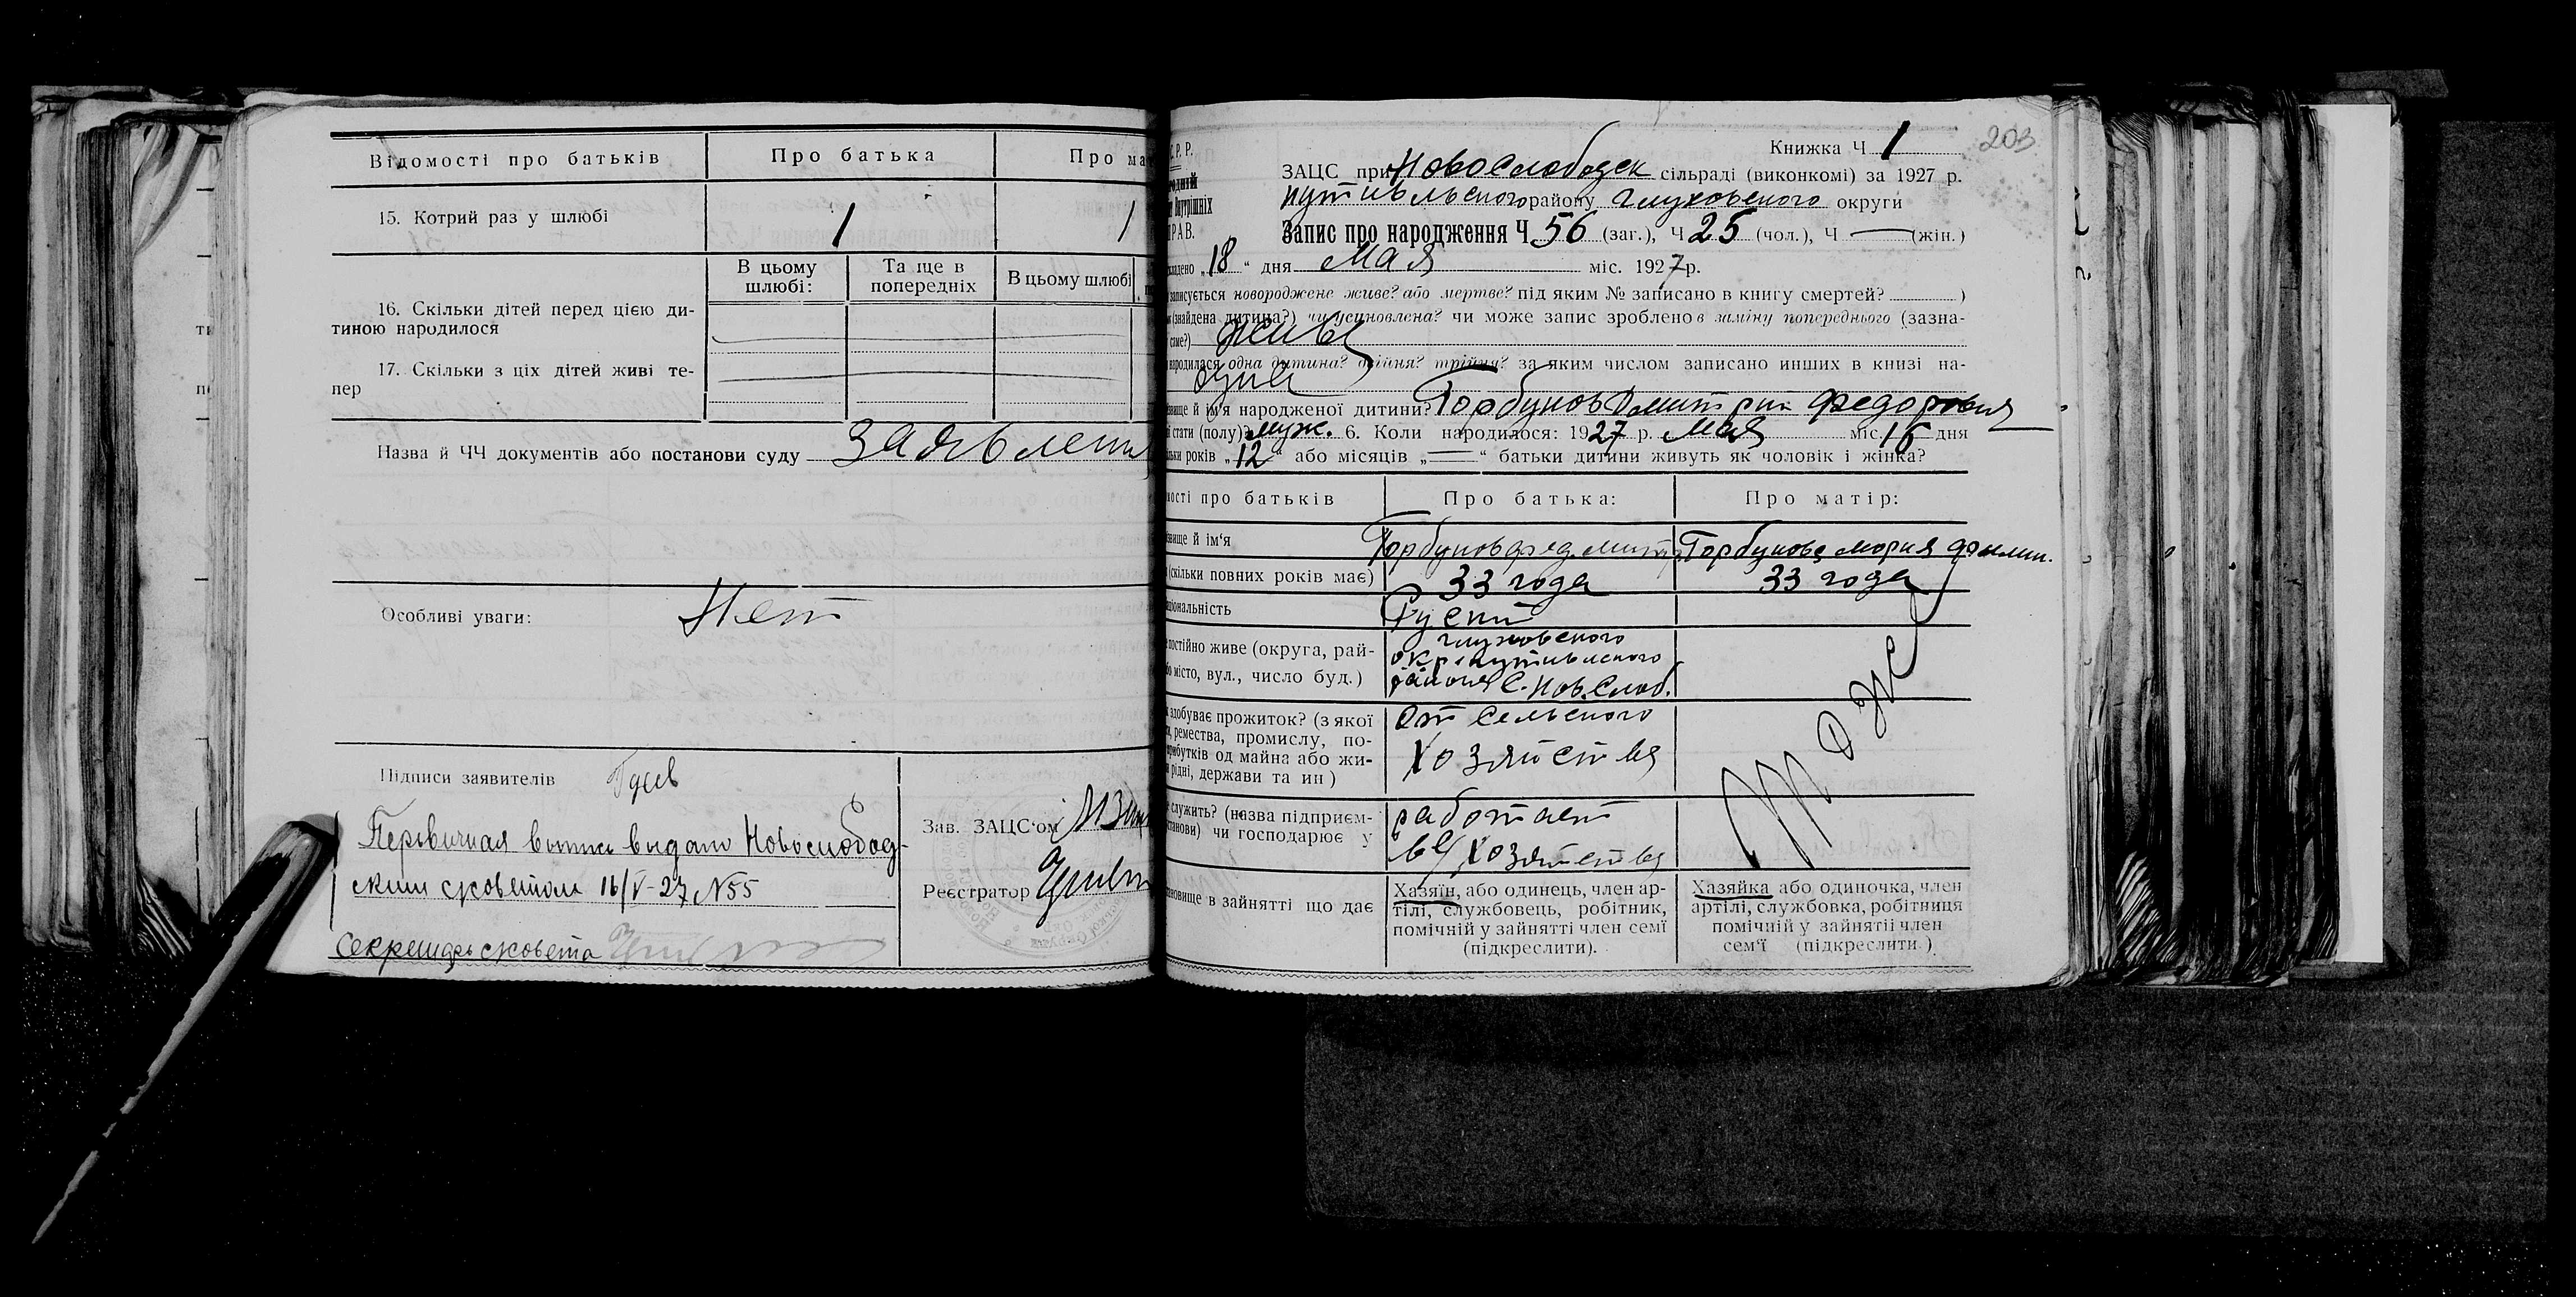 Відомості про батьків
Про батька
Про ма
15. Котрий раз у шлюбі
1
1
В цьому шлюбі:
Та ще в попередніх
В цьому шлюбі
16. Скільки дітей перед цією ди-
тиною народилося
17. Скільки з ціх дітей живі те-
пер
Назва й ЧЧ документів або постанови суду
Особливі уваги:
Нет
Підписи заявителів
Гусев
Первичная выпись выдана Новослобод-
ским с/советом 16/V-27 N55
Секретарь с/совета
Зав. ЗАЦС'ом
Реєстратор
203
С.Р.Р.
Книжка Ч 1
ЗАЦС при Новослободск сільраді (виконкомі) за 1927 р.
Внутрішніх
Путивльского району Глуховского округи
ПРАВ.
Запис про народження Ч 56 (заг.), Ч 25 (чол.), Ч — (жін.)
„18“ дня Мая міс. 1927 р.
записується новороджене живе? або мертве? під яким № записано в книгу смертей? )
(знайдена дитина?) чи усиновлена? чи може запис зроблено в заміну попереднього (зазна-
саме?) живы
народилася одна дитина? двійня? трійня? за яким числом записано инших в книзі на-
один
й ім'я народженої дитини? Горбунов Дмитрий Федорович
стати (полу)? муж. 6. Коли народилося: 1927 р. Мая міс. 16 дня
років „12“ або місяців „—“ батьки дитини живуть як чоловік і жінка?
про батьків
Про батька:
Про матір:
й ім'я
Горбунов Фед. Митр.
Горбунова Мария Филип.
(скільки повних років має)
33 года
33 года
Руский
постійно живе (округа, рай-
місто, вул., число буд.)
Глуховского
окр. Путивльского
района С. Нов. Слоб.
здобуває прожиток? (з якої
ремества, промислу, по-
прибутків од майна або жи-
рідні, держави та ин)
от сельского
хозяйства
тоже
служить? (назва підприєм-
чи господарює у
работает
в с/хозяйства
в зайнятті що дає
Хазяїн, або одинець, член ар-
тілі, службовець, робітник,
помічній у зайнятті член семї
(підкреслити).
Хазяйка або одиночка, член
артілі, службовка, робітниця
помічній у зайнятії член
сем'ї (підкреслити)